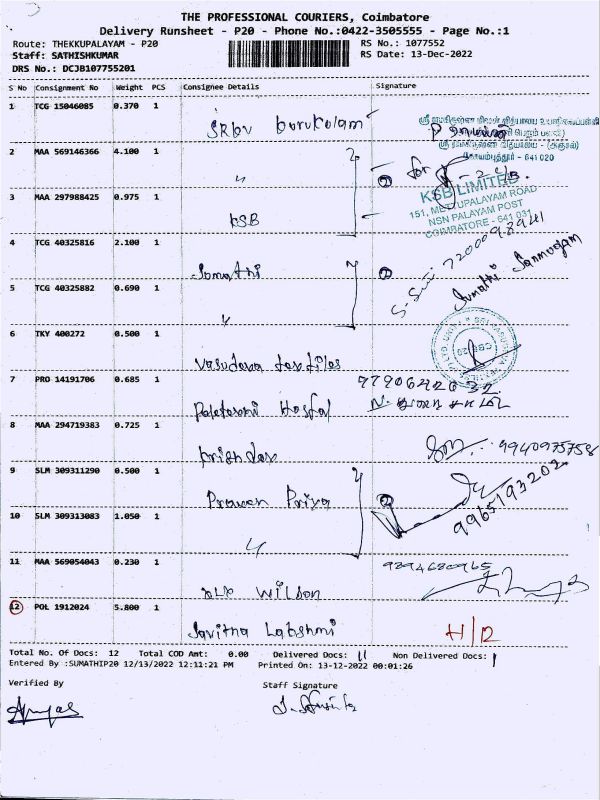 THE PROFESSIONAL COURIERS, Coimbatore
Delivery Runsheet - P20 - Phone No.:0422-3505555 - Page No.:1
Route: THEKKUPALAYAM - P20 RS No.: 1077552
Staff: SATHISHKUMAR RS Date: 13-Dec-2022
DRS No.: DCJB107755201
S No Consignment No Weight PCS Consignee Details Signature
1 TCG 15046085 0.370 1
2 MAA 569146366 4.100 1 〃 for
கோயம்புத்தூர் - 641 020
3 MAA 297988425 0.975 1 KSB
KSB LIMITED
151, METTUPALAYAM ROAD
NSN PALAYAM POST
COIMBATORE - 641 031
4 TCG 40325816 2.100 1 Sumathi
Sumathi Sanmugam
5 TCG 40325882 0.690 1 〃
6 TKY 400272 0.500 1 Vasudeva textiles
7 PRO 14191706 0.685 1
8 MAA 294719383 0.725 1 9940975758
9 SLM 309311290 0.500 1 Praveen Priya 9965193202
10 SLM 309313083 1.050 1 〃
11 MAA 569054043 0.230 1 WILSON 9894680965
12 POL 1912024 5.800 1 Savitha Lakshmi H/R
Total No. Of Docs: 12 Total COD Amt: 0.00 Delivered Docs: 11 Non Delivered Docs: 1
Entered By :SUMATHIP20 12/13/2022 12:11:21 PM Printed On: 13-12-2022 00:01:26
Verified By Staff Signature